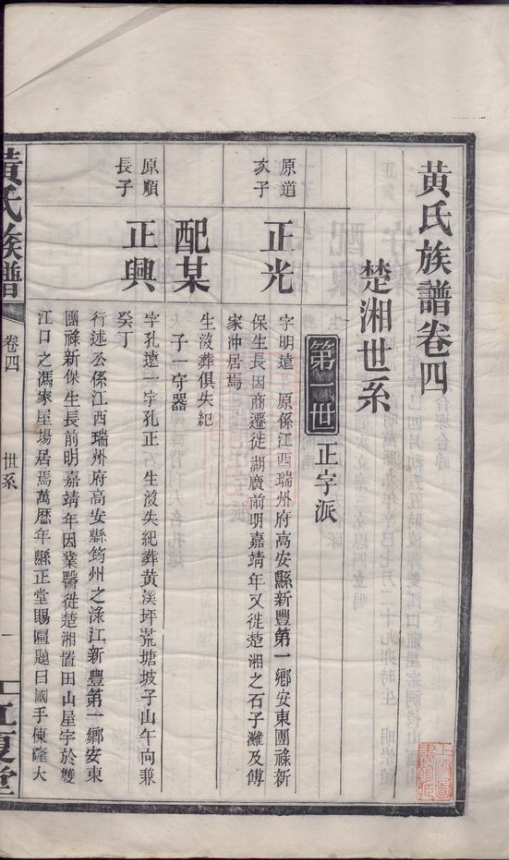 黃氏族譜卷四
楚湘世系
第一世 正字派
原道
亥子
正光
字明遠 原係江西瑞州府高安縣新豐第一鄉安東團祿新
保生長因商遷徙湖廣前明嘉靖年又徙楚湘之石子灘及傅
家冲居焉
配某
生沒葬俱失紀
子一守器
原順
長子
正興
字孔遠一字孔正 生沒失紀葬黃溪坪荒塘坡子山午向兼
癸丁
行述公係江西瑞州府高安縣筠州之淥江新豐第一鄉安東
團祿新保生長前明嘉靖年因業醫徙楚湘置田山屋宇於雙
江口之馮家屋場居焉萬曆年縣正堂賜匾題曰國手棟隆大
黃氏族譜
卷四
世系
一
江夏堂